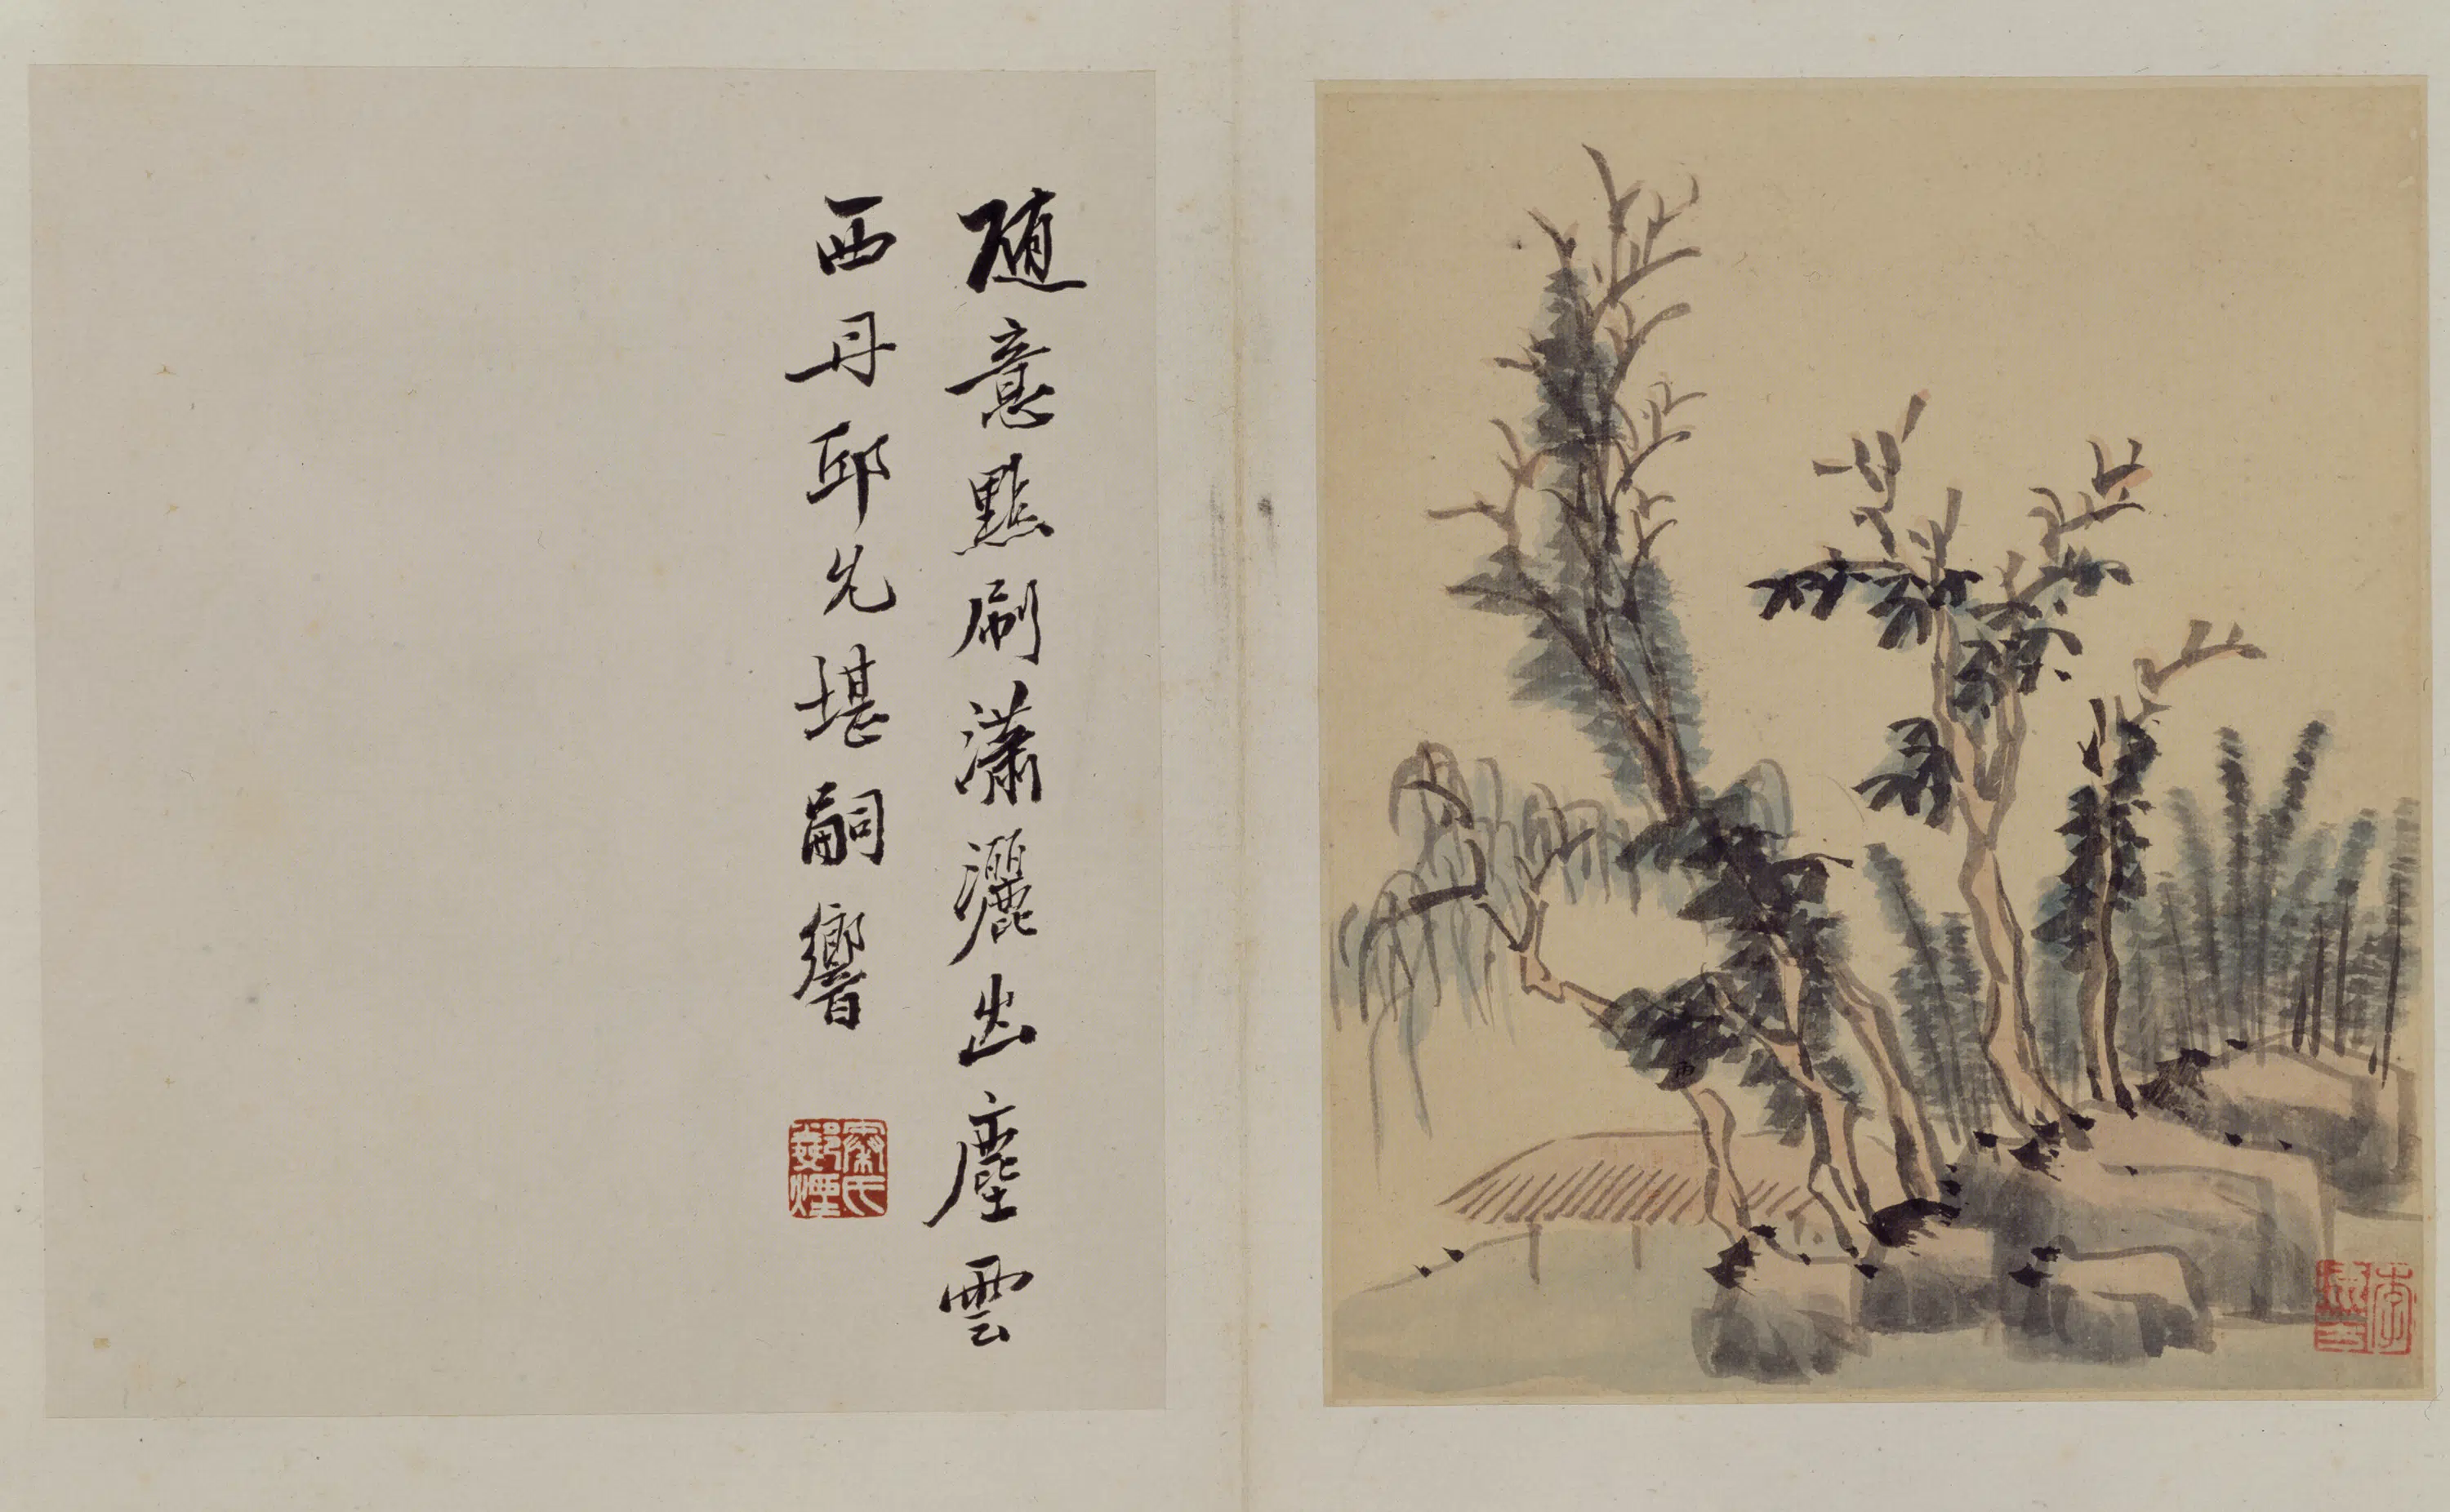 随意點刷瀟灑出塵雲
西丹邱先堪嗣響